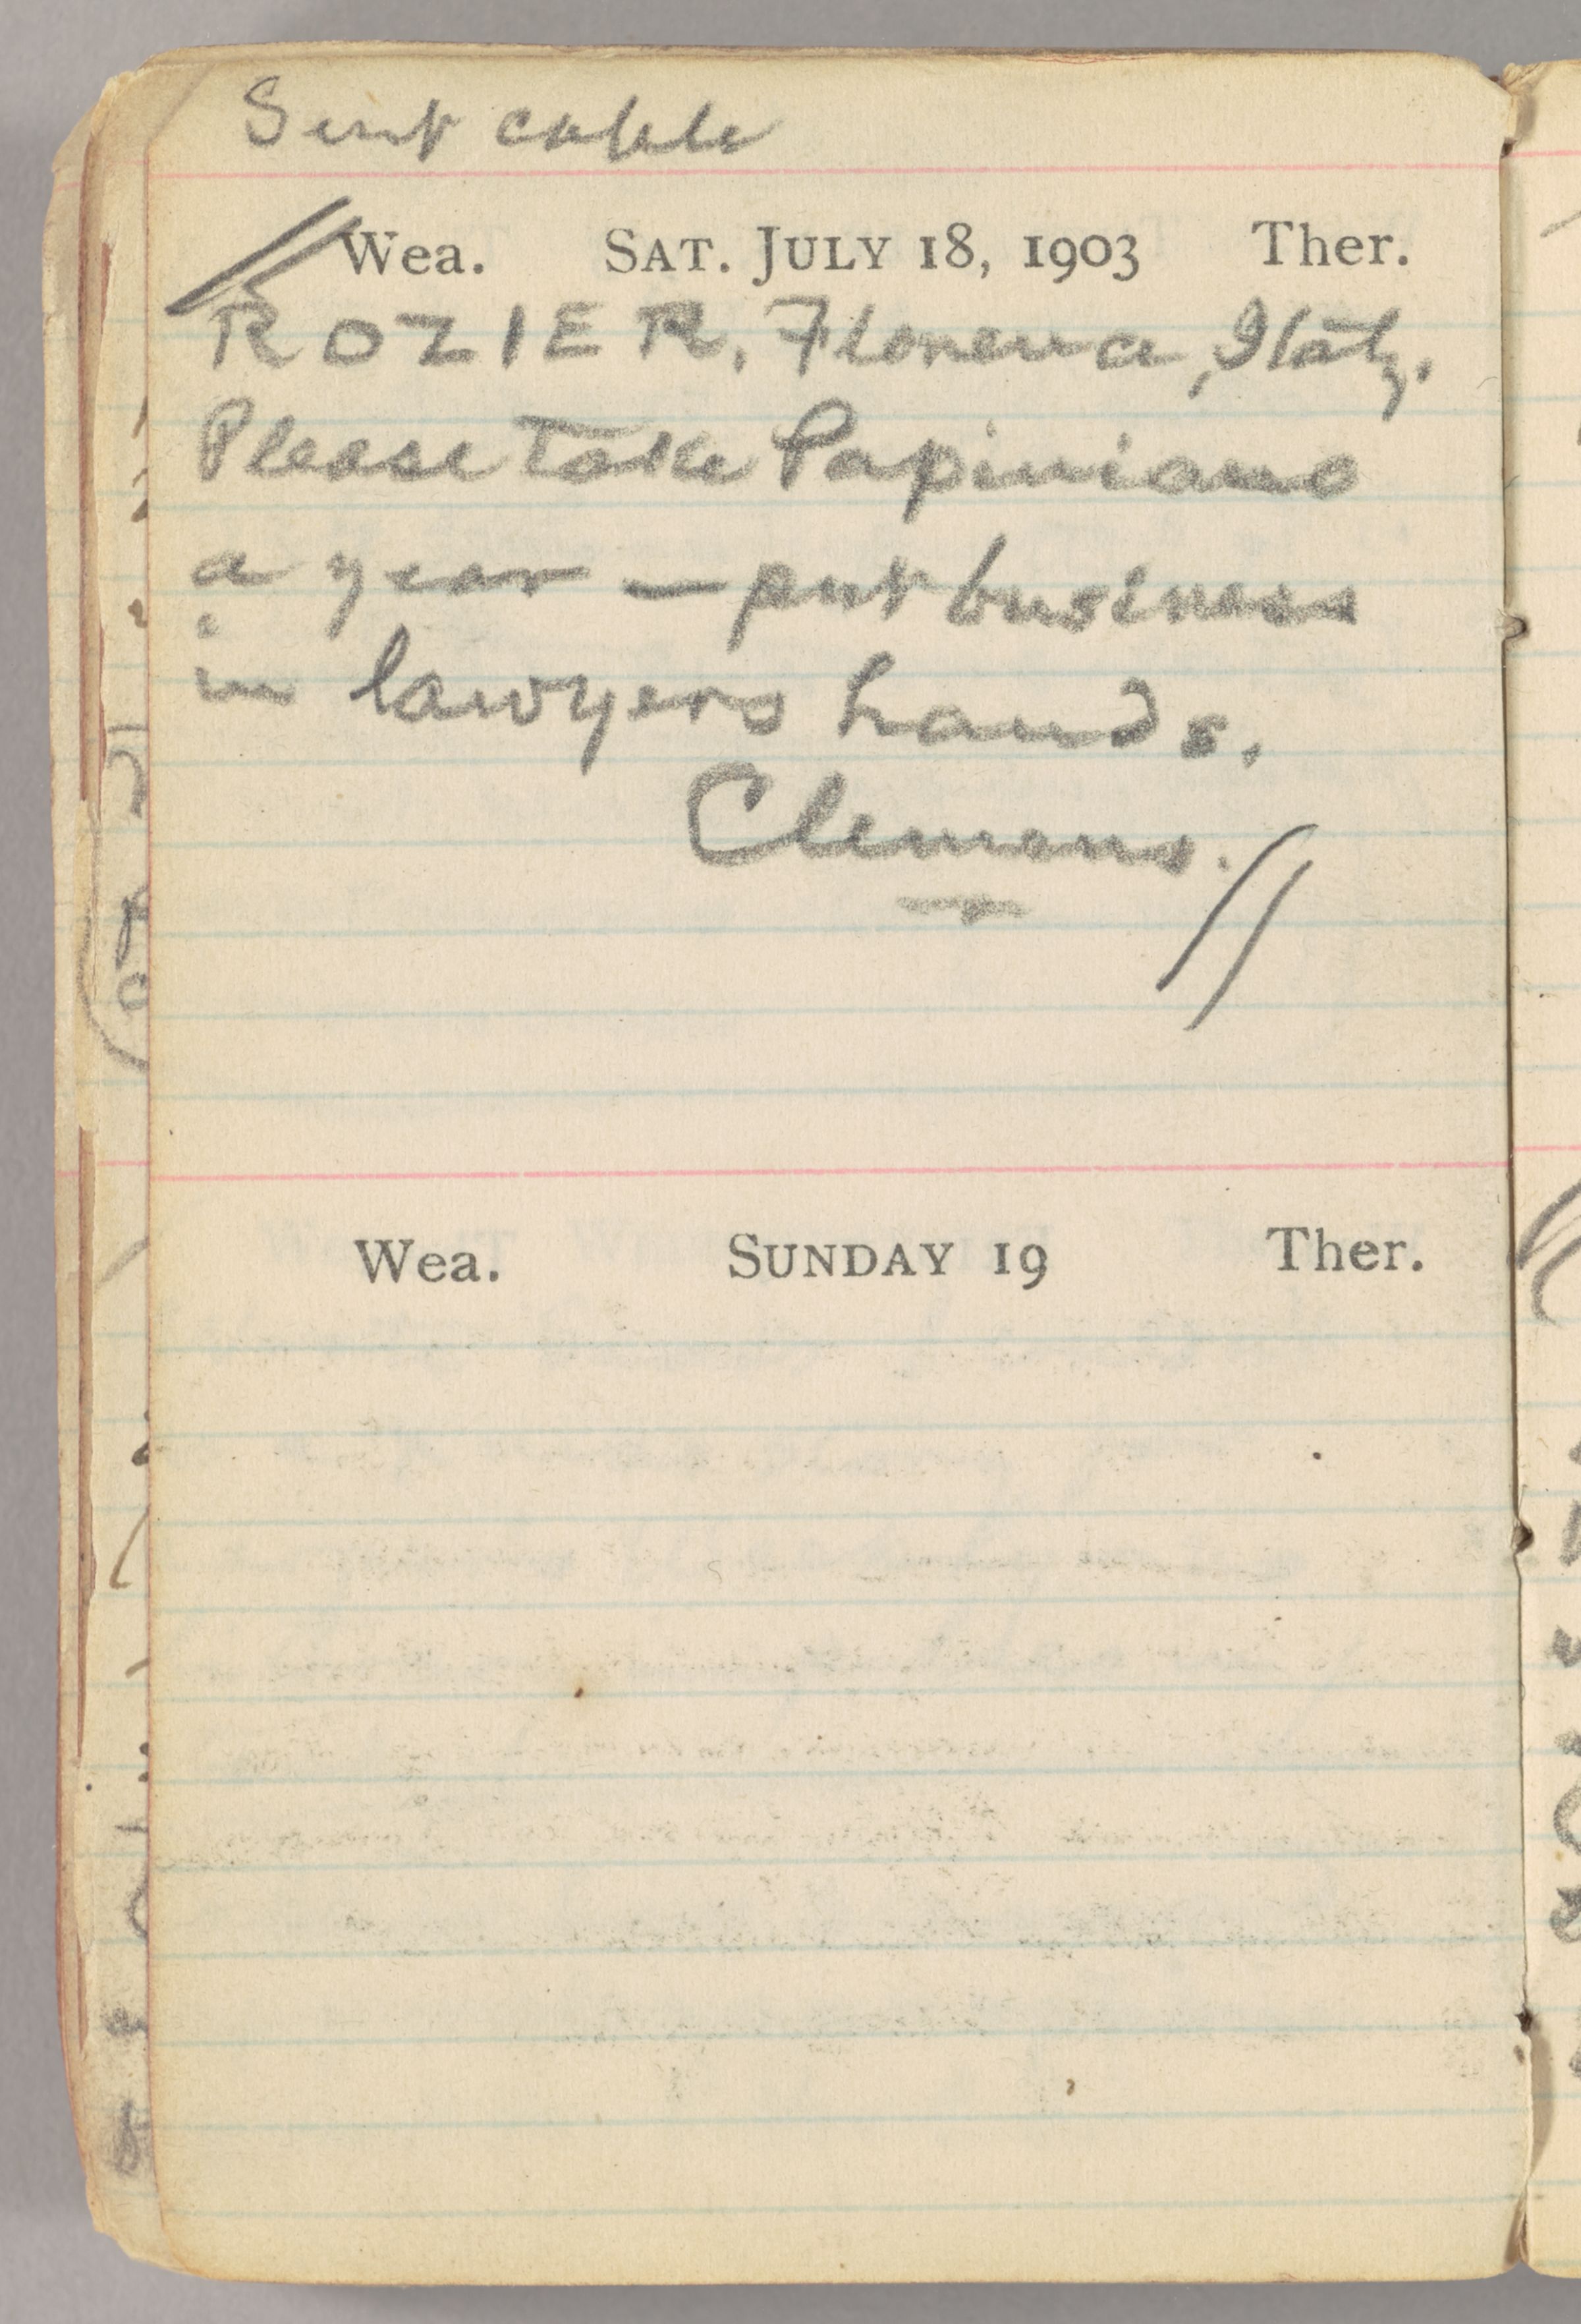 Sent cable
Wea. SAT. JULY 18, 1903 Ther.
ROZIER, Florence, Italy.
Please take Papiniano
a year — put business
in lawyers hands.
Clemens.
Wea. SUNDAY 19 Ther.